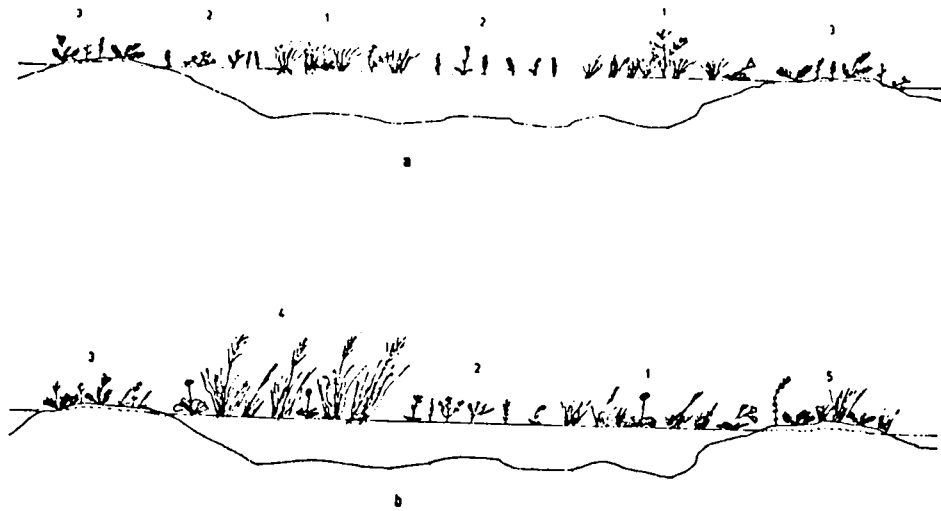 3 2 1 2 1 3
a
4
3 2 1 5
b